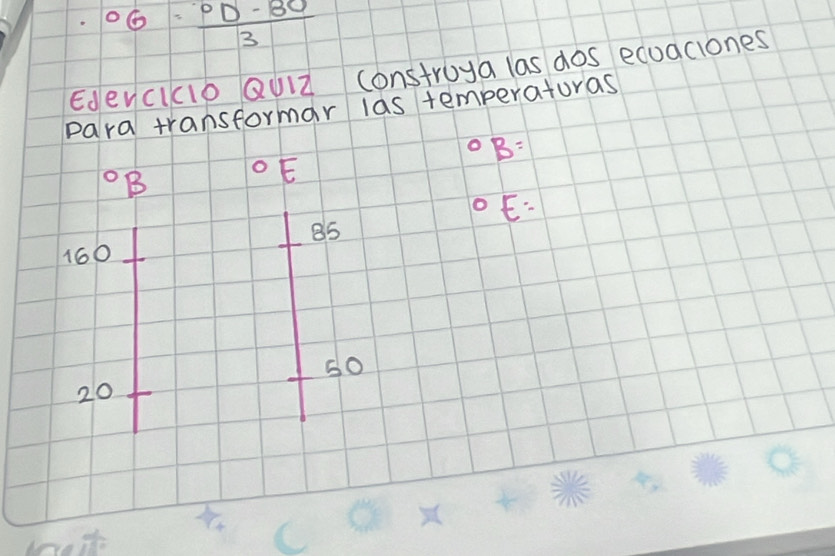 . °G = °D - 80
3
EJercicio QUIZ Construya las dos ecuaciones
para transformar las temperaturas
°B °E °B=
°E=
160 85
20 50